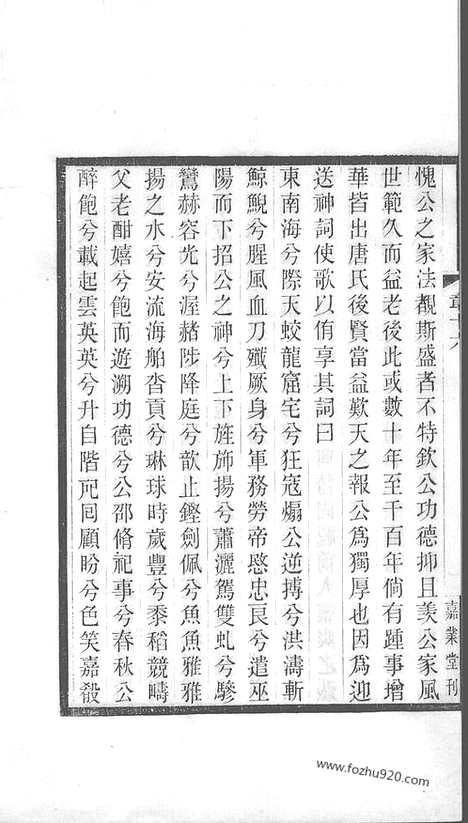 愧公之家法覩斯盛者不特欽公功德抑且羨公家風
世範久而益老後此或數十年至千百年倘有踵事增
華皆出唐氏後賢當益歎天之報公爲獨厚也因爲迎
送神詞使歌以侑享其詞曰
東南海兮際天蛟龍窟宅兮狂寇煽公逆搏兮洪濤斬
鯨鯢兮腥風血刀殲厥身兮軍務勞帝愍忠良兮遣巫
陽而下招公之神兮上下旌斾揚兮蕭灑駕雙虬兮驂
鸞赫容光兮渥赭陟降庭兮歆止鏗劍佩兮魚魚雅雅
揚之水兮安流海舶沓貢兮琳球時歲豐兮黍稻競疇
父老酣嬉兮飽而遊溯功德兮公邵脩祀事兮春秋公
醉飽兮載起雲英英兮升自階戺囘顧盼兮色笑嘉殽
嘉業堂刊
www.fozhu920.com